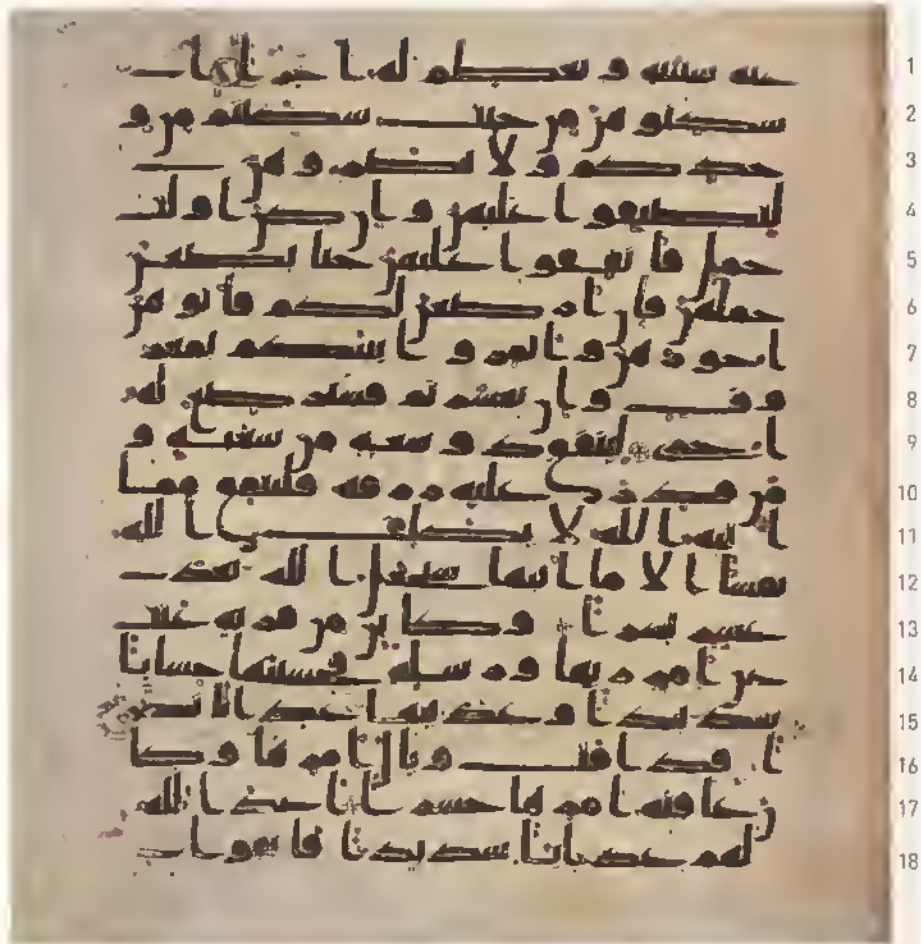 1 عنه سيته ويعظم له اجرا ا
2 سكنوهن من حيث سكنتم من و
3 جدكم ولا تضروهن
4 لتضيقوا عليهن وان كن اولت
5 حمل فانفقوا عليهن حتى يضعن
6 حملهن فان ارضعن لكم فاتوهن
7 اجورهن واتمروا بينكم بمعر
8 وف وان تعسرتم فسترضع له
9 اخرى لينفق ذو سعة من سعته و
10 من قدر عليه رزقه فلينفق مما
11 اتيه الله لا يكلف الله
12 نفسا الا ما اتيها سيجعل الله بعد
13 عسر يسرا وكاين من قرية عتت
14 عن امر ربها ورسله فحسبنها حسابا
15 شديدا وعذبنها عذابا نكر
16 ا فذاقت وبال امرها وكا
17 ن عقبة امرها خسرا اعد الله
18 لهم عذابا شديدا فاتقوا ا